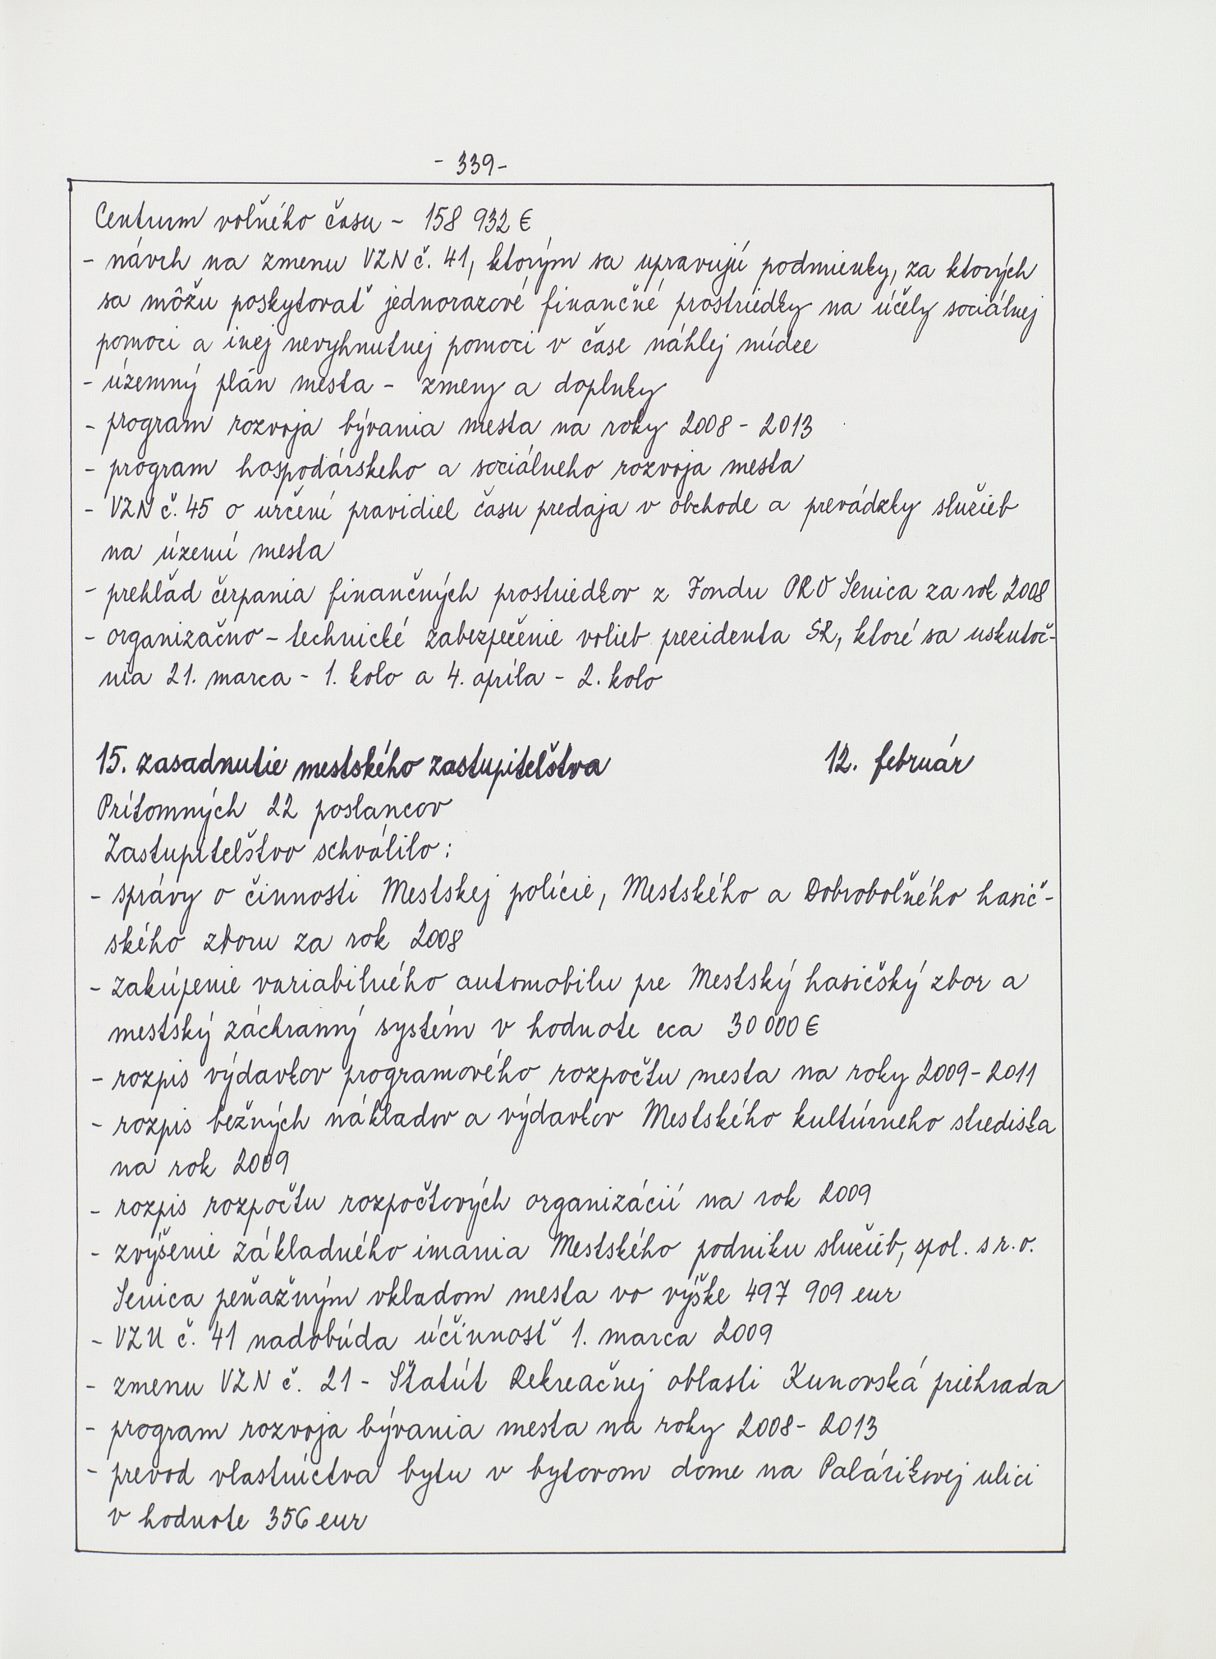 - 339 -
Centrum voľného času - 158 932 €
- návrh na zmenu VZN č. 41, ktorým sa upravujú podmienky, za ktorých
sa môžu poskytovať jednorazové finančné prostriedky na účely sociálnej
pomoci a inej nevyhnutnej pomoci v čase náhlej núdze
- územný plán mesta - zmeny a doplnky
- program rozvoja bývania mesta na roky 2008 - 2013
- program hospodárskeho a sociálneho rozvoja mesta
- VZN č. 45 o určení pravidiel času predaja v obchode a prevádzky služieb
na území mesta
- prehľad čerpania finančných prostriedkov z Fondu PRO Senica za rok 2008
- organizačno - technické zabezpečenie volieb prezidenta SR, ktoré sa uskutoč-
nia 21. marca - 1. kolo a 4. apríla - 2. kolo
15. zasadnutie mestského zastupiteľstva 12. február
Prítomných 22 poslancov
Zastupiteľstvo schválilo:
- správy o činnosti Mestskej polície, Mestského a Dobroboľného hasič-
ského zboru za rok 2008
- zakúpenie variabilného automobilu pre Mestský hasičský zbor a
mestský záchranný systém v hodnote cca 30 000 €
- rozpis výdavkov programového rozpočtu mesta na roky 2009 - 2011
- rozpis bežných nákladov a výdavkov Mestského kultúrneho strediska
na rok 2009
- rozpis rozpočtu rozpočtových organizácií na rok 2009
- zvýšenie základného imania Mestského podniku služieb, spol. s r. o.
Senica peňažným vkladom mesta vo výške 497 909 eur
- VZN č. 41 nadobúda účinnosť 1. marca 2009
- zmenu VZN č. 21 - Štatút Rekreačnej oblasti Kunovská priehrada
- program rozvoja bývania mesta na roky 2008 - 2013
- prevod vlastníctva bytu v bytovom dome na Palárikovej ulici
v hodnote 356 eur